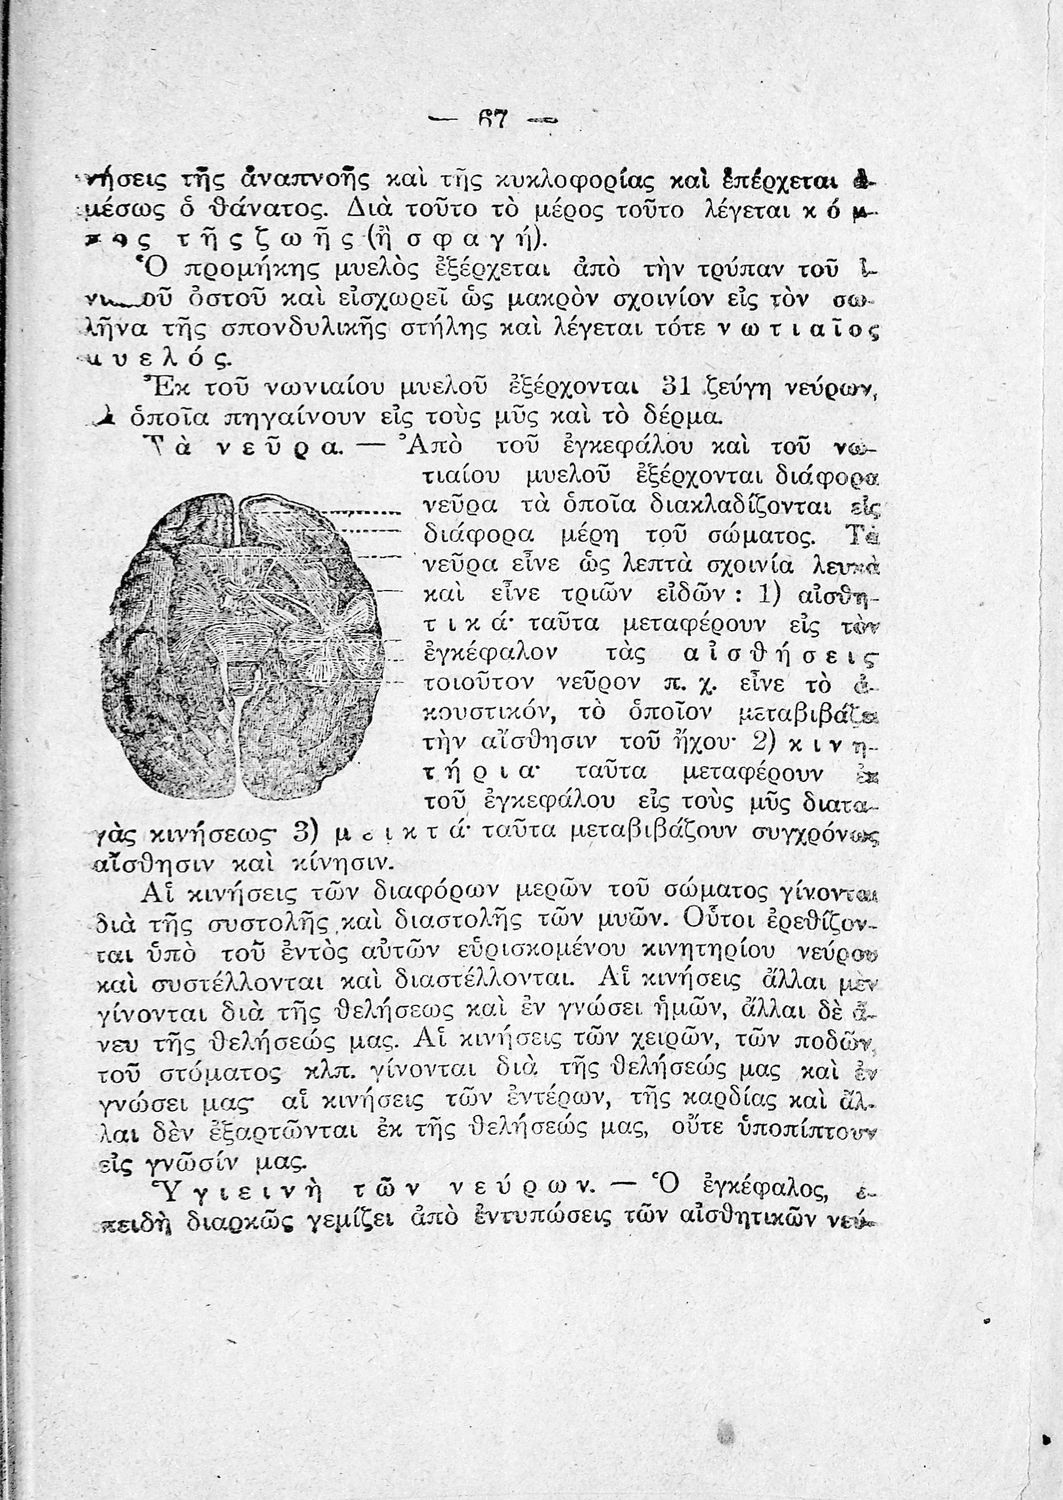 — 67 —
νήσεις τῆς ἀναπνοῆς καὶ τῆς κυκλοφορίας καὶ ἐπέρχεται ἀ-
μέσως ὁ θάνατος. Διὰ τοῦτο τὸ μέρος τοῦτο λέγεται κ ό μ-
τ ῆ ς ζ ω ῆ ς (ἢ σ φ α γ ή).
Ὁ προμήκης μυελὸς ἐξέρχεται ἀπὸ τὴν τρύπαν τοῦ ἰ-
ὀστοῦ καὶ εἰσχωρεῖ ὡς μακρὸν σχοινίον εἰς τὸν σω-
λῆνα τῆς σπονδυλικῆς στήλης καὶ λέγεται τότε ν ω τ ι α ῖ ο ς
μ υ ε λ ό ς.
Ἐκ τοῦ νωνιαίου μυελοῦ ἐξέρχονται 31 ζεύγη νεύρων,
ὁποῖα πηγαίνουν εἰς τοὺς μῦς καὶ τὸ δέρμα.
Τ ὰ ν ε ῦ ρ α. — Ἀπὸ τοῦ ἐγκεφάλου καὶ τοῦ νω-
τιαίου μυελοῦ ἐξέρχονται διάφορα
νεῦρα τὰ ὁποῖα διακλαδίζονται εἰς
διάφορα μέρη τοῦ σώματος. Τὰ
νεῦρα εἶνε ὡς λεπτὰ σχοινία λευκὰ
καὶ εἶνε τριῶν εἰδῶν : 1) αἰσθη-
τ ι κ ά· ταῦτα μεταφέρουν εἰς τὸν
ἐγκέφαλον τὰς α ἰ σ θ ή σ ε ι ς
τοιοῦτον νεῦρον π. χ. εἶνε τὸ ἀ-
κουστικόν, τὸ ὁποῖον μεταβιβάζει
τὴν αἴσθησιν τοῦ ἤχου· 2) κ ι ν η-
τ ή ρ ι α· ταῦτα μεταφέρουν ἐκ
τοῦ ἐγκεφάλου εἰς τοὺς μῦς διατα-
γὰς κινήσεως· 3) μ ε ι κ τ ά· ταῦτα μεταβιβάζουν συγχρόνως
αἴσθησιν καὶ κίνησιν.
Αἱ κινήσεις τῶν διαφόρων μερῶν τοῦ σώματος γίνονται
διὰ τῆς συστολῆς καὶ διαστολῆς τῶν μυῶν. Οὗτοι ἐρεθίζον-
ται ὑπὸ τοῦ ἐντὸς αὐτῶν εὑρισκομένου κινητηρίου νεύρου
καὶ συστέλλονται καὶ διαστέλλονται. Αἱ κινήσεις ἄλλαι μὲν
γίνονται διὰ τῆς θελήσεως καὶ ἐν γνώσει ἡμῶν, ἄλλαι δὲ ἄ-
νευ τῆς θελήσεώς μας. Αἱ κινήσεις τῶν χειρῶν, τῶν ποδῶν,
τοῦ στόματος κλπ. γίνονται διὰ τῆς θελήσεώς μας καὶ ἐν
γνώσει μας· αἱ κινήσεις τῶν ἐντέρων, τῆς καρδίας καὶ ἄλ-
λαι δὲν ἐξαρτῶνται ἐκ τῆς θελήσεώς μας, οὔτε ὑποπίπτουν
εἰς γνῶσίν μας.
Ὑ γ ι ε ι ν ὴ τ ῶ ν ν ε ύ ρ ω ν. — Ὁ ἐγκέφαλος, ἐ-
πειδὴ διαρκῶς γεμίζει ἀπὸ ἐντυπώσεις τῶν αἰσθητικῶν νεύ-